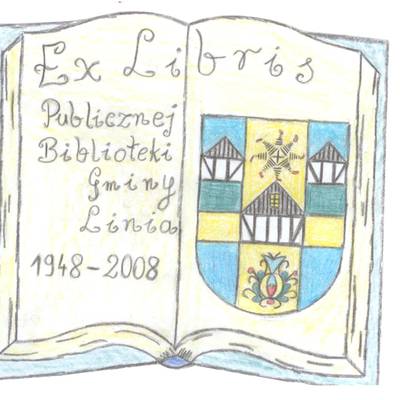 Ex Libris
Publicznej
Biblioteki
Gminy
Linia
1948-2008